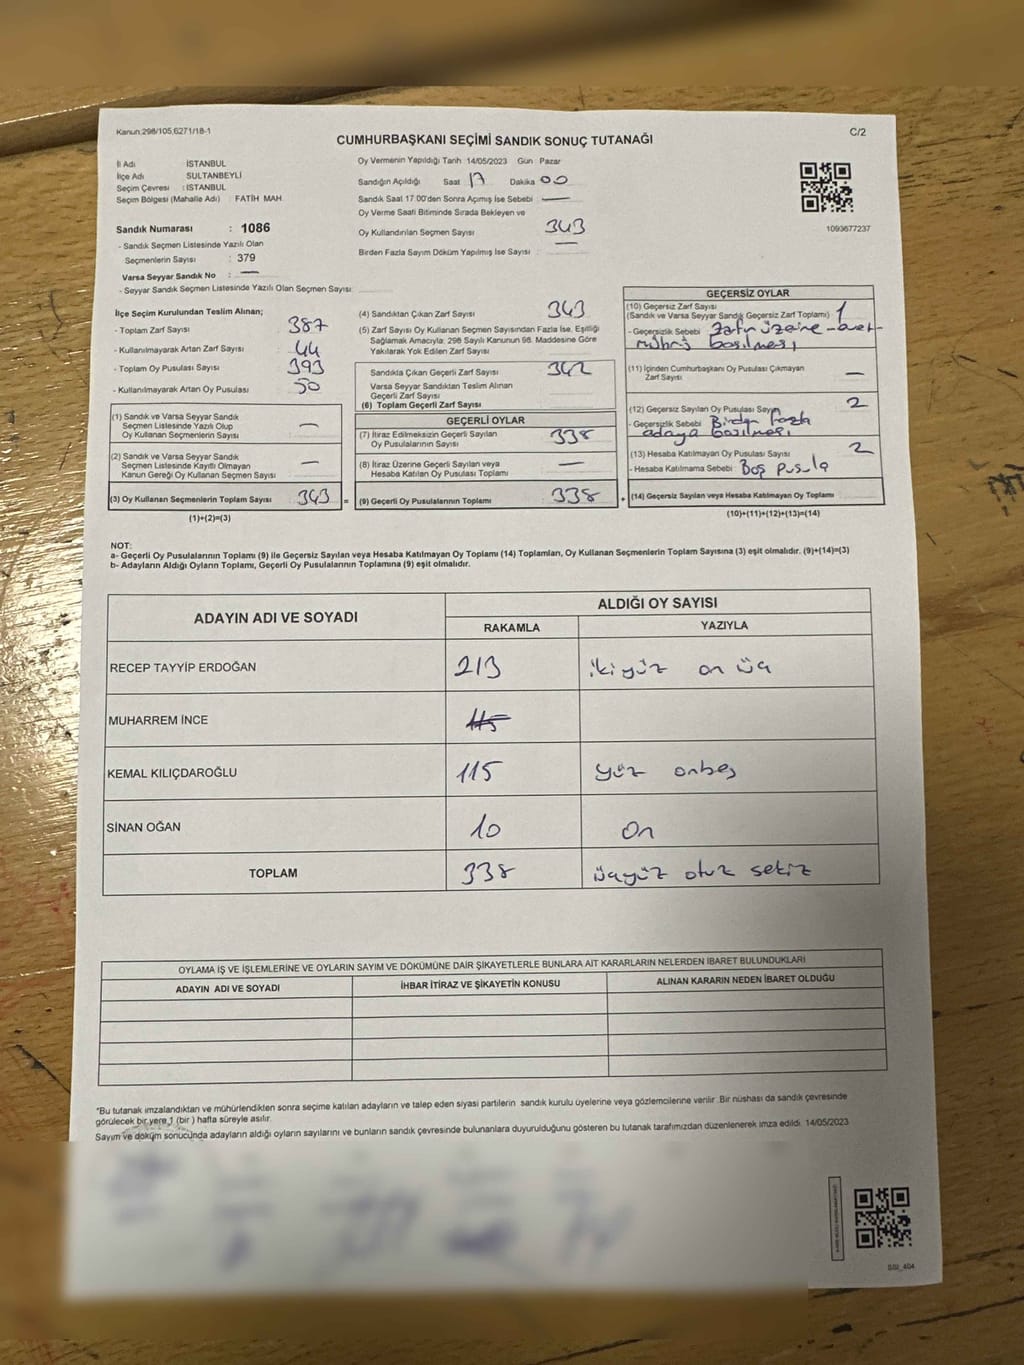 Kanun:298/105,6271/18-1
C/2
CUMHURBAŞKANI SEÇİMİ SANDIK SONUÇ TUTANAĞI
İl Adı İSTANBUL
İlçe Adı SULTANBEYLİ
Seçim Çevresi : İSTANBUL
Seçim Bölgesi (Mahalle Adı) : FATİH MAH.
Sandık Numarası : 1086
- Sandık Seçmen Listesinde Yazılı Olan
Seçmenlerin Sayısı : 379
Varsa Seyyar Sandık No : —
- Seyyar Sandık Seçmen Listesinde Yazılı Olan Seçmen Sayısı:
Oy Vermenin Yapıldığı Tarih 14/05/2023 Gün : Pazar
Sandığın Açıldığı Saat 17 Dakika 00
Sandık Saat 17:00'den Sonra Açımış İse Sebebi : —
Oy Verme Saati Bitiminde Sırada Bekleyen ve
Oy Kullandırılan Seçmen Sayısı 343
Birden Fazla Sayım Döküm Yapılmış İse Sayısı : —
1093677237
İlçe Seçim Kurulundan Teslim Alınan;
- Toplam Zarf Sayısı 387
- Kullanılmayarak Artan Zarf Sayısı 44
- Toplam Oy Pusulası Sayısı 393
- Kullanılmayarak Artan Oy Pusulası 50
(1) Sandık ve Varsa Seyyar Sandık
Seçmen Listesinde Yazılı Olup
Oy Kullanan Seçmenlerin Sayısı —
(2) Sandık ve Varsa Seyyar Sandık
Seçmen Listesinde Kayıtlı Olmayan
Kanun Gereği Oy Kullanan Seçmen Sayısı —
(3) Oy Kullanan Seçmenlerin Toplam Sayısı 343 =
(1)+(2)=(3)
(4) Sandıktan Çıkan Zarf Sayısı 343
(5) Zarf Sayısı Oy Kullanan Seçmen Sayısından Fazla İse, Eşitliği
Sağlamak Amacıyla; 298 Sayılı Kanunun 98. Maddesine Göre
Yakılarak Yok Edilen Zarf Sayısı
Sandıkla Çıkan Geçerli Zarf Sayısı 342
Varsa Seyyar Sandıktan Teslim Alınan
Geçerli Zarf Sayısı
(6) Toplam Geçerli Zarf Sayısı
GEÇERLİ OYLAR
(7) İtiraz Edilmeksizin Geçerli Sayılan
Oy Pusulalarının Sayısı 338
(8) İtiraz Üzerine Geçerli Sayılan veya
Hesaba Katılan Oy Pusulası Toplamı —
(9) Geçerli Oy Pusulalarının Toplamı 338 +
GEÇERSİZ OYLAR
(10) Geçersiz Zarf Sayısı
(Sandık ve Varsa Seyyar Sandık Geçersiz Zarf Toplamı) 1
- Geçersizlik Sebebi : Zarfın üzerine evet
mührü basılması
(11) İçinden Cumhurbaşkanı Oy Pusulası Çıkmayan
Zarf Sayısı —
(12) Geçersiz Sayılan Oy Pusulası Sayısı 2
- Geçersizlik Sebebi : Birden fazla
adaya basılması
(13) Hesaba Katılmayan Oy Pusulası Sayısı 2
- Hesaba Katılmama Sebebi : Boş pusula
(14) Geçersiz Sayılan veya Hesaba Katılmayan Oy Toplamı
(10)+(11)+(12)+(13)=(14)
NOT:
a- Geçerli Oy Pusulalarının Toplamı (9) ile Geçersiz Sayılan veya Hesaba Katılmayan Oy Toplamı (14) Toplamları, Oy Kullanan Seçmenlerin Toplam Sayısına (3) eşit olmalıdır. (9)+(14)=(3)
b- Adayların Aldığı Oyların Toplamı, Geçerli Oy Pusulalarının Toplamına (9) eşit olmalıdır.
ADAYIN ADI VE SOYADI
ALDIĞI OY SAYISI
RAKAMLA YAZIYLA
RECEP TAYYİP ERDOĞAN 213 ikiyüz on üç
MUHARREM İNCE 115
KEMAL KILIÇDAROĞLU 115 yüz onbeş
SİNAN OĞAN 10 On
TOPLAM 338 üçyüz otuz sekiz
OYLAMA İŞ VE İŞLEMLERİNE VE OYLARIN SAYIM VE DÖKÜMÜNE DAİR ŞİKAYETLERLE BUNLARA AİT KARARLARIN NELERDEN İBARET BULUNDUKLARI
ADAYIN ADI VE SOYADI İHBAR İTİRAZ VE ŞİKAYETİN KONUSU ALINAN KARARIN NEDEN İBARET OLDUĞU
*Bu tutanak imzalandıktan ve mühürlendikten sonra seçime katılan adayların ve talep eden siyasi partilerin sandık kurulu üyelerine veya gözlemcilerine verilir .Bir nüshası da sandık çevresinde
görülecek bir yere 1 (bir ) hafta süreyle asılır.
Sayım ve döküm sonucunda adayların aldığı oyların sayılarını ve bunların sandık çevresinde bulunanlara duyurulduğunu gösteren bu tutanak tarafımızdan düzenlenerek imza edildi. 14/05/2023
SSI_404